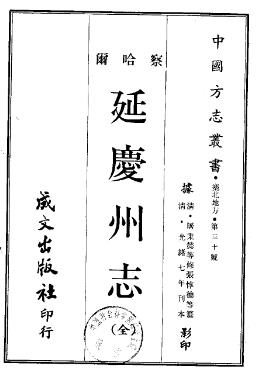 中國方志叢書・塞北地方・第三十號
據清・屠秉懿等修張惇德等纂
清・光緒七年刊本影印
察哈爾
延慶州志
(全)
成文出版社印行